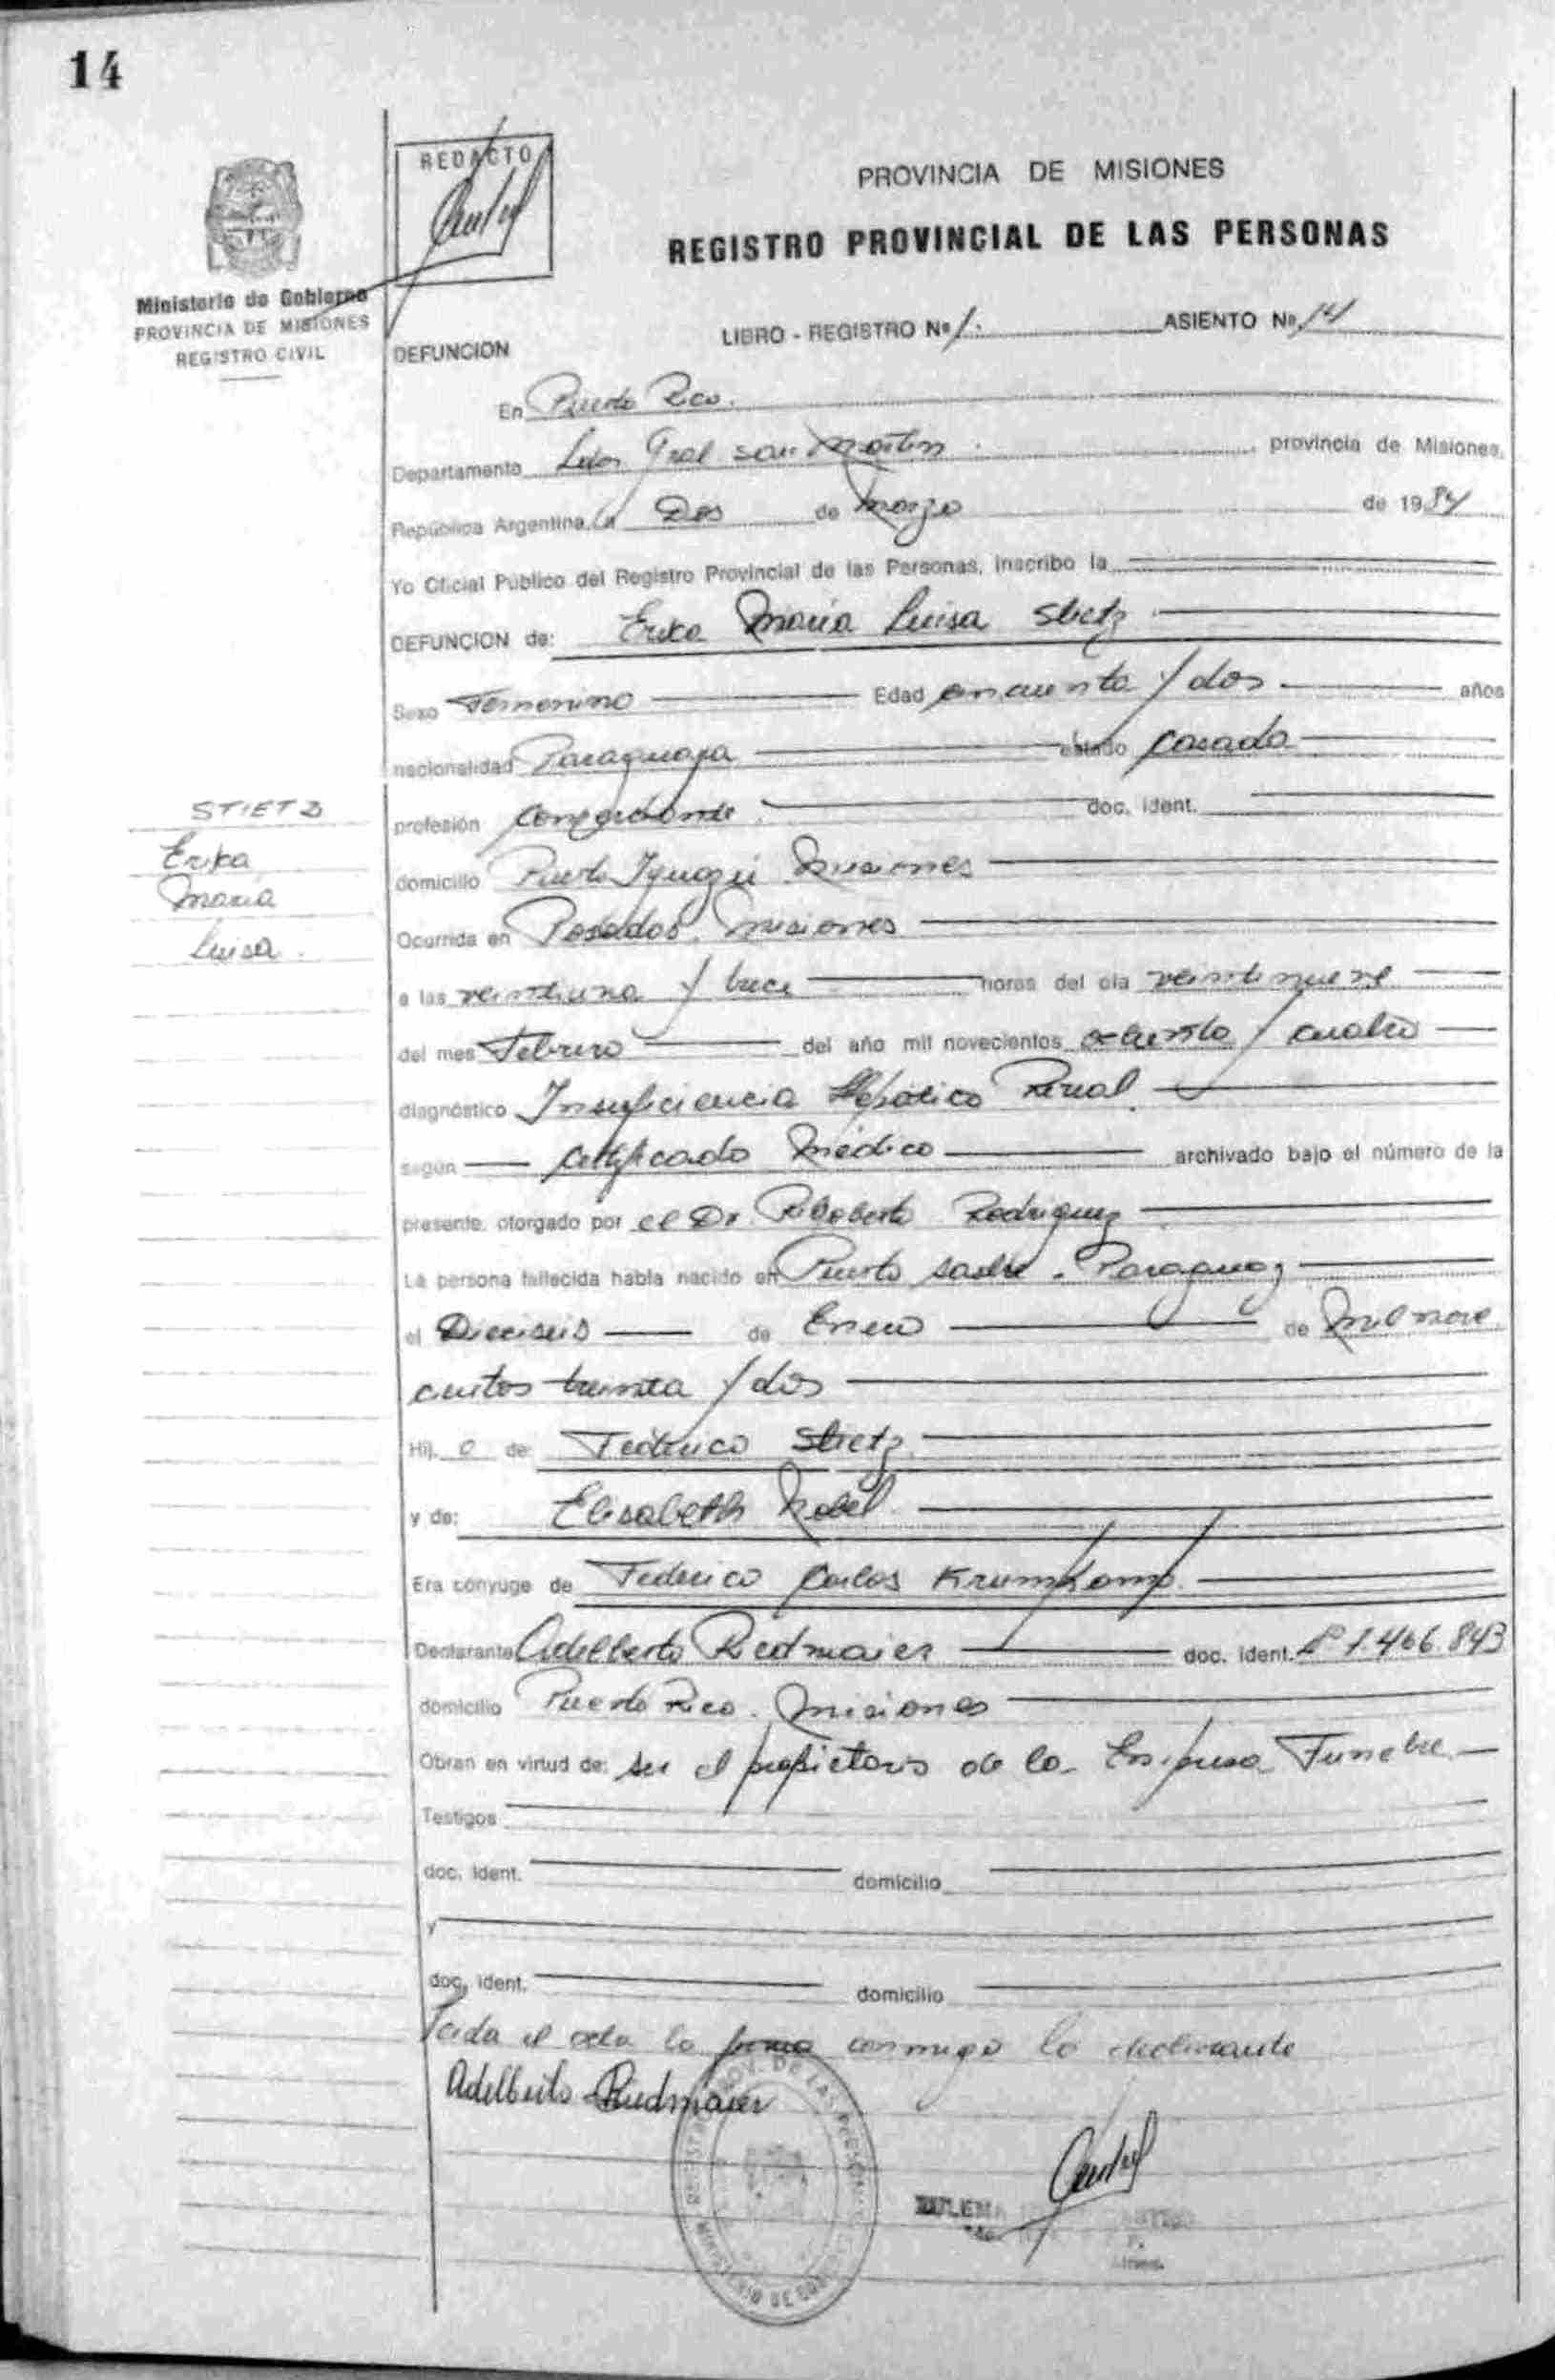 14
REDACTO
PROVINCIA DE MISIONES
REGISTRO PROVINCIAL DE LAS PERSONAS
Ministerio de Gobierno
PROVINCIA DE MISIONES
REGISTRO CIVIL
LIBRO - REGISTRO Nº 1. ASIENTO Nº 14
DEFUNCION
En Puerto Rico.
Departamento Ldor Gral San Martin. provincia de Misiones,
República Argentina, a Dos de Marzo de 1984
Yo Oficial Público del Registro Provincial de las Personas, inscribo la
DEFUNCION de: Erika María Luisa Stietz
Sexo Femenino Edad cincuenta y dos años
nacionalidad Paraguaya estado casada
STIETZ
Erika
Maria
Luisa.
profesión comerciante. doc. ident.
domicilio Puerto Iguazú Misiones
Ocurrida en Posadas. Misiones
a las veintiuna y trece horas del día veintinueve
del mes Febrero del año mil novecientos ochenta y cuatro
diagnóstico Insuficiencia Hepatico Renal.
según certificado Médico archivado bajo el número de la
presente, otorgado por el Dr. Rodriguez
La persona fallecida había nacido en Puerto Sastre. Paraguay
el Dieciseis de Enero de Mil nove
cientos treinta y dos
Hij a de Federico Stietz
y de: Elisabeth
Era cónyuge de Federico Carlos Krumkamp.
Declarante Adelberto Riedmaier doc. ident. Nº 1.466.843
domicilio Puerto Rico. Misiones
Obran en virtud de: ser el propietario de la Empresa Funebre.
Testigos
doc. ident. domicilio
y
doc. ident. domicilio
Leida el acta la firma conmigo lo declarante
Adelberto Riedmaier
MINISTERIO DE